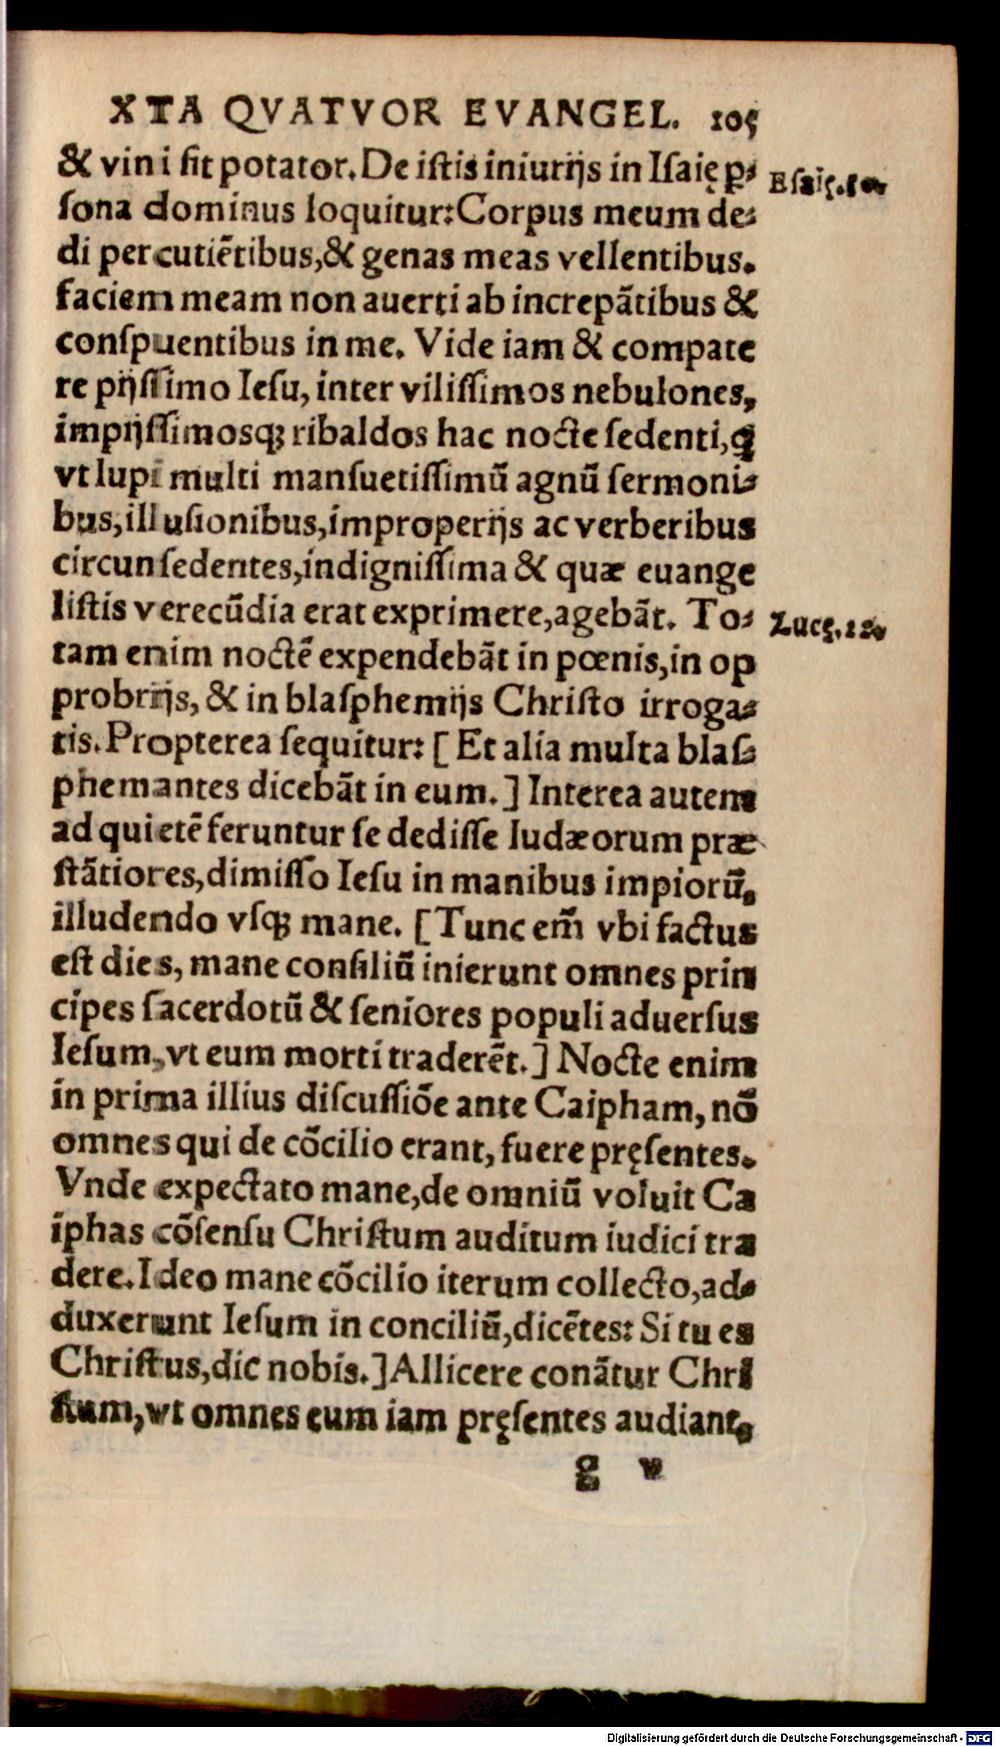 XTA QVATVOR EVANGEL. 105
& vini sit potator. De istis iniurijs in Isaię p⸗
sona dominus loquitur: Corpus meum de⸗
di percutiẽtibus, & genas meas vellentibus.
faciem meam non auerti ab increpãtibus &
conspuentibus in me. Vide iam & compate
re pijssimo Iesu, inter vilissimos nebulones,
impijssimosq́; ribaldos hac nocte sedenti, q̃
vt lupi multi mansuetissimũ agnũ sermoni⸗
bus, illusionibus, improperijs ac verberibus
circunsedentes, indignissima & quæ euange
listis verecũdia erat exprimere, agebãt. To⸗
tam enim noctẽ expendebãt in pœnis, in op
probrijs, & in blasphemijs Christo irroga⸗
tis. Propterea sequitur: [Et alia multa blas⸗
phemantes dicebãt in eum.] Interea autem
ad quietẽ feruntur se dedisse Iudæorum præ
stãtiores, dimisso Iesu in manibus impiorũ,
illudendo vsq; mane. [Tunc em̃ vbi factus
est dies, mane consiliũ inierunt omnes prin
cipes sacerdotũ & seniores populi aduersus
Iesum, vt eum morti traderẽt.] Nocte enim
in prima illius discussiõe ante Caipham, nõ
omnes qui de cõcilio erant, fuere pręsentes.
Vnde expectato mane, de omniũ voluit Ca
iphas cõsensu Christum auditum iudici tra
dere. Ideo mane cõcilio iterum collecto, ad⸗
duxerunt Iesum in conciliũ, dicẽtes: Si tu es
Christus, dic nobis.] Allicere conãtur Chri
stum, vt omnes eum iam pręsentes audiant,
g v
Esaię. 50.
Lucę. 22.
Digitalisierung gefördert durch die Deutsche Forschungsgemeinschaft - DFG